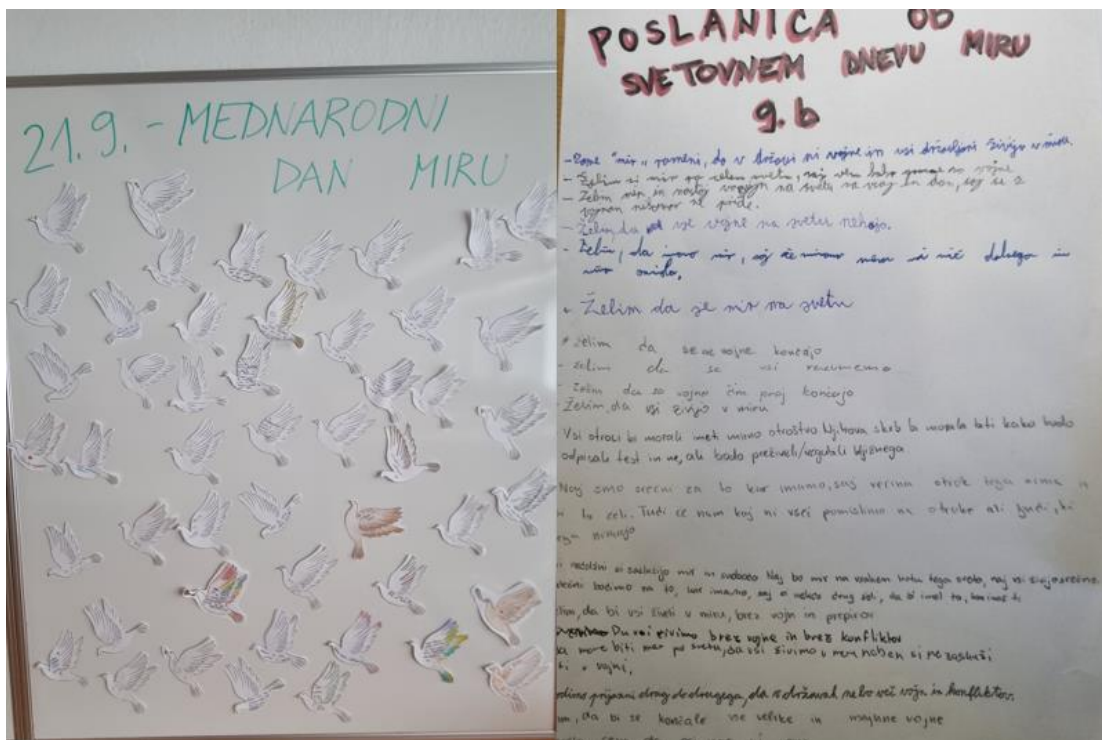 21.9. - MEDNARODNI
DAN MIRU
POSLANICA OB
SVETOVNEM DNEVU MIRU
9. b
- Zame "mir" pomeni, da v državi ni vojne in vsi državljani živijo v miru.
- Želim si mir na celem svetu, saj
- Želim mir in na svetu in dan, saj se z
vojnam ne pride.
- Želim, da vse vojne na svetu nehajo.
- Želim, da mir, saj če nimamo ni nič dobrega in
- Želim da je mir na svetu
* želim da se vojne končajo
- želim da se vsi razumemo
- Želim da se vojne čim prej končajo
- Želim, da vsi živijo v miru
Vsi otroci bi morali imeti mirno otroštvo. Njihova skrb bi morala biti kako bodo
odpisali test in ne, ali bodo preživeli/izgubili bližnjega.
Naj smo srečni za to kar imamo, saj večina otrok tega nima in
si to želi. Tudi če nam kaj ni všeč pomislimo na otroke ali ljudi, ki
tega nimajo
si zaslužijo mir in svobodo Naj bo mir na vsakem kotu tega sveta, naj vsi živijo srečno.
bodimo za to, kar imamo, saj si nekdo drug želi, da bi imel to, kar imaš ti
da bi vsi živeli v miru, brez vojn in prepirov
Da vsi živimo brez vojne in brez konfliktov
more biti mir po svetu, da vsi živimo v miru noben si ne zasluži
v vojni,
prijazni drug do drugega, da v državah ne bo več vojn in konfliktov.
da bi se končale vse velike in majhne vojne